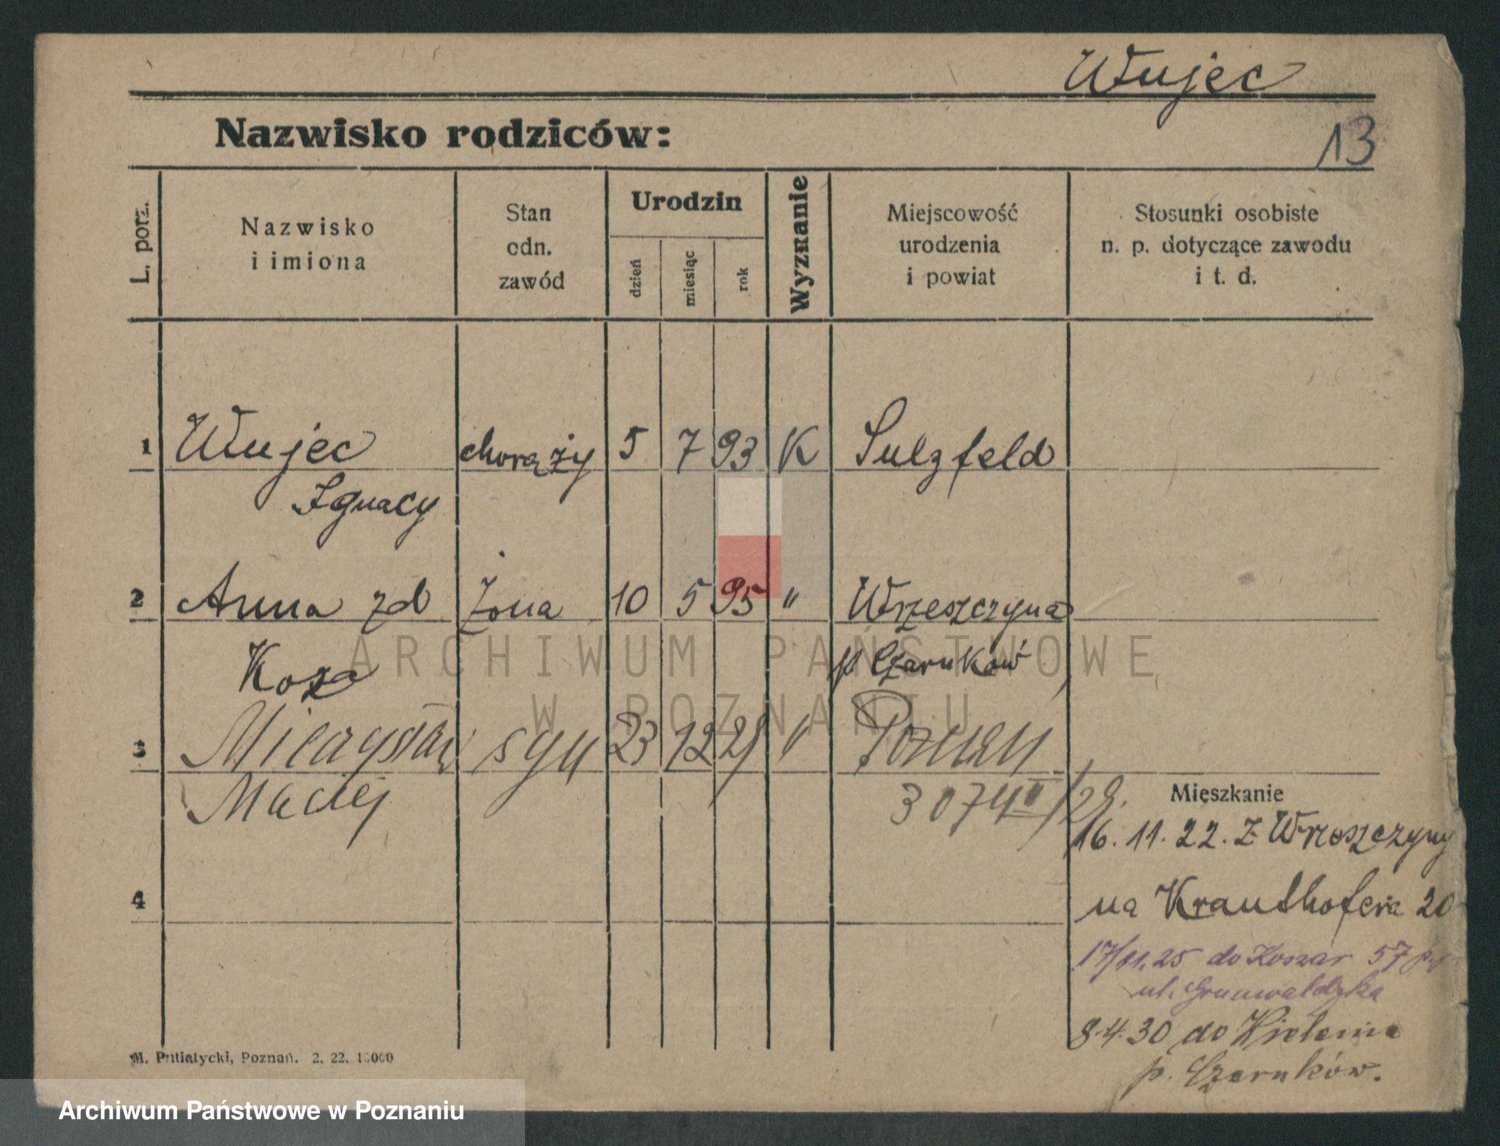 Wujec
Nazwisko rodziców:
13
L. porz.
Nazwisko
i imiona
Stan
odn.
zawód
Urodzin
dzień
miesiąc
rok
Wyznanie
Miejscowość
urodzenia
i powiat
Stosunki osobiste
n. p. dotyczące zawodu
i t. d.
1 Wujec chorąży 5 7 93 K Sulzfeld
Ignacy
2 Anna zd żona 10 5 95 " Wrzeszczyna
Koza p Czarnków
ARCHIWUM PAŃSTWOWE
W POZNANIU
3 Mieczysław syn 23 12 21 " Poznań
Maciej 3074 II/29.
Mieszkanie
16.11.22. Z Wrzeszczyny
4
na Krauthofera 20
17/11.25 do Koszar 57 p.
ul. Grunwaldzka
8.4.30 do
p. Czarnków.
M. Putiatycki, Poznań. 2. 22. 10000
Archiwum Państwowe w Poznaniu